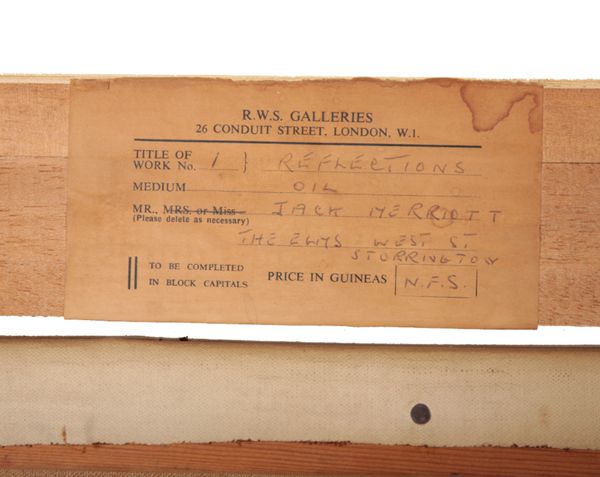 R.W.S. GALLERIES
26 CONDUIT STREET, LONDON, W.1.
TITLE OF
WORK No. 1 } REFLECTIONS
MEDIUM OIL
MR., MRS. or Miss JACK MERRIOTT
(Please delete as necessary)
THE ELMS WEST ST
STORRINGTON
TO BE COMPLETED
IN BLOCK CAPITALS
PRICE IN GUINEAS N.F.S.